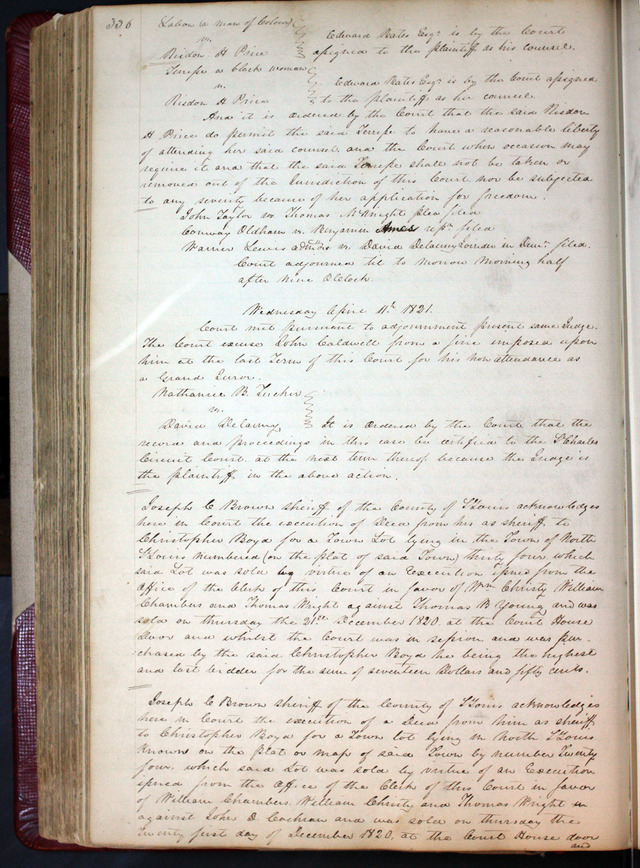 336 Labon (a man of Colour)
vs.
Risdon H Price
Edward Bates Esqr is by the Court
assigned to the plaintiff as his counsel.
Tempe a black woman
vs.
Risdon H Price
Edward Bates Esqr is by the Court assigned
to the plaintiff as her counsel.
And it is ordered by the Court that the said Risdon
H Price do permit the said Tempe to have a reasonable liberty
of attending her said counsel and the Court when occasion may
require it and that the said Tempe shall not be taken or
removed out of the Jurisdiction of this Court nor be subjected
to any severity because of her application for freedom.
John Taylor vs Thomas McKnight plea filed
Conway Oldham vs Benjamin Ames repn. filed
Warner Lewis admrs vs. David Delauny in Demr. filed.
Court adjourned til to morrow morning half
after nine OClock.
Wednesday April 11th 1821.
Court met pursuant to adjournment present same Judge.
The Court excuse John Caldwell from a fine imposed upon
him at the last Term of this Court for his non attendance as
a Grand Juror.
Nathaniel B. Tucker
vs.
David Delauny
It is ordered by the Court that the
record and proceedings in this case be certified to the St Charles
Circuit Court at the next term thereof because the Judge is
the plaintiff in the above action.
Joseph C Brown sheriff of the County of St Louis acknowledges
here in Court the execution of Deed from his as sheriff to
Christopher Boyd for a Town Lot lying in the Town of North
St Louis numbered (on the plat of said Town) thirty four which
said Lot was sold by virtue of an execution issued from the
office of the Clerk of this Court in favor of Wm Christy William
Chambers and Thomas Wright against Thomas B Young and was
sold on thursday the 21st December 1820 at the Court House
door and whilst the Court was in session and was pur-
chased by the said Christopher Boyd he being the highest
and last bidder for the sum of seventeen Dollars and fifty cents.
Joseph C Brown sheriff of the County of St Louis acknowledges
here in Court the execution of a Deed from him as sheriff
to Christopher Boyd for a Town lot lying in North St Louis
known on the Plat or map of said Town by number Twenty
four which said Lot was sold by virtue of an Execution
issued from the office of the Clerk of this Court in favor
of William Chambers William Christy and Thomas Wright in
against John D Cochran and was sold on thursday the
twenty first day of December 1820, at the Court House door
and